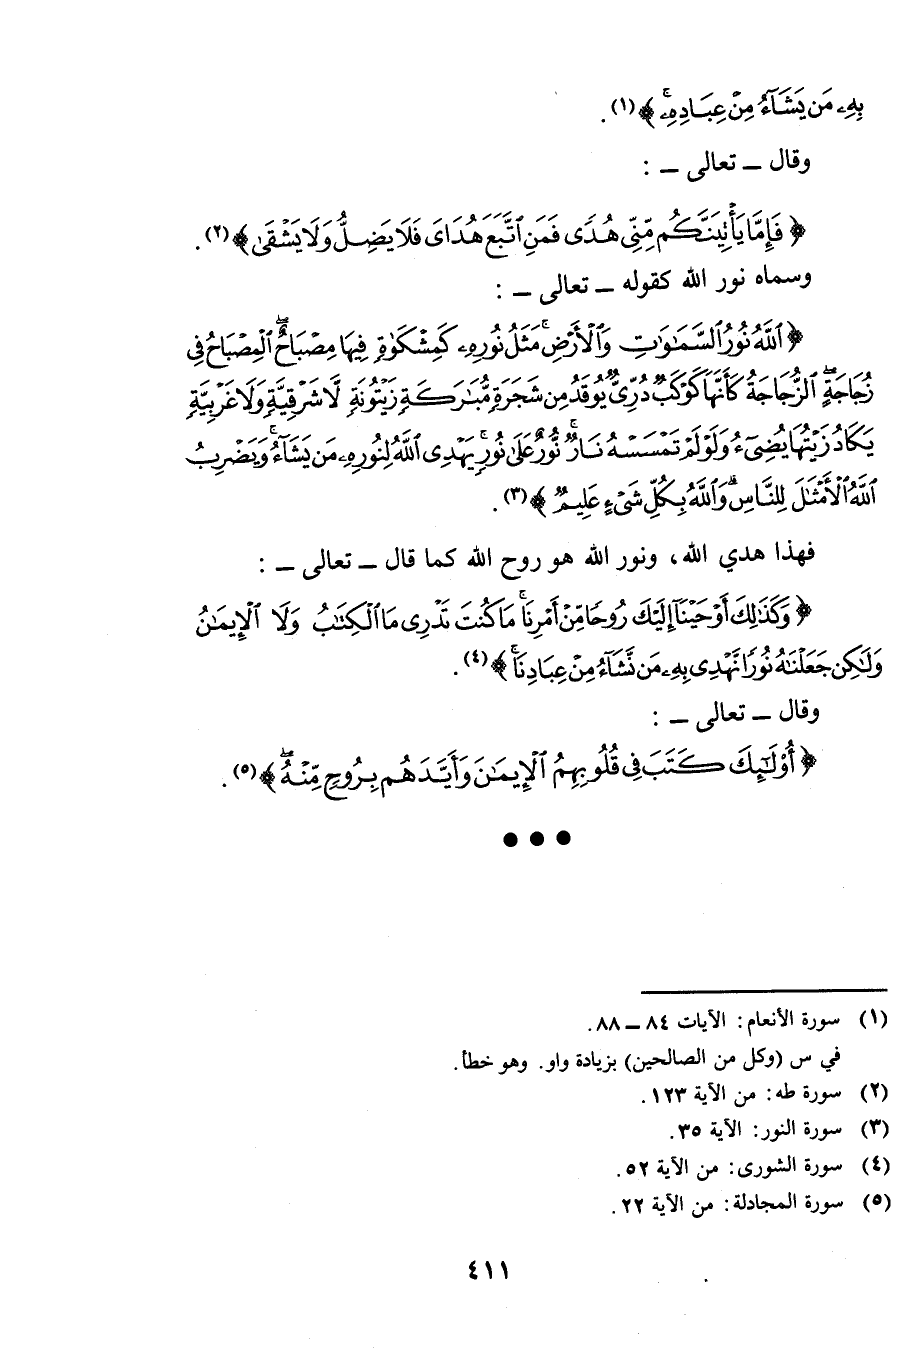 بِهِۦ مَن يَشَآءُ مِنْ عِبَادِهِۦۚ ﴾(١).
وقال ــ تعالى ــ :
﴿ فَإِمَّا يَأْتِيَنَّكُم مِّنِّى هُدًى فَمَنِ ٱتَّبَعَ هُدَاىَ فَلَا يَضِلُّ وَلَا يَشْقَىٰ ﴾(٢).
وسماه نور الله كقوله ــ تعالى ــ :
﴿ ٱللَّهُ نُورُ ٱلسَّمَٰوَٰتِ وَٱلْأَرْضِۚ مَثَلُ نُورِهِۦ كَمِشْكَوٰةٍ فِيهَا مِصْبَاحٌۖ ٱلْمِصْبَاحُ فِى
زُجَاجَةٍۖ ٱلزُّجَاجَةُ كَأَنَّهَا كَوْكَبٌ دُرِّىٌّ يُوقَدُ مِن شَجَرَةٍ مُّبَٰرَكَةٍ زَيْتُونَةٍ لَّا شَرْقِيَّةٍ وَلَا غَرْبِيَّةٍ
يَكَادُ زَيْتُهَا يُضِىٓءُ وَلَوْ لَمْ تَمْسَسْهُ نَارٌۚ نُّورٌ عَلَىٰ نُورٍۗ يَهْدِى ٱللَّهُ لِنُورِهِۦ مَن يَشَآءُۚ وَيَضْرِبُ
ٱللَّهُ ٱلْأَمْثَٰلَ لِلنَّاسِۗ وَٱللَّهُ بِكُلِّ شَىْءٍ عَلِيمٌ ﴾(٣).
فهذا هدي الله، ونور الله هو روح الله كما قال ــ تعالى ــ :
﴿ وَكَذَٰلِكَ أَوْحَيْنَآ إِلَيْكَ رُوحًا مِّنْ أَمْرِنَاۚ مَا كُنتَ تَدْرِى مَا ٱلْكِتَٰبُ وَلَا ٱلْإِيمَٰنُ
وَلَٰكِن جَعَلْنَٰهُ نُورًا نَّهْدِى بِهِۦ مَن نَّشَآءُ مِنْ عِبَادِنَاۚ ﴾(٤).
وقال ــ تعالى ــ :
﴿ أُو۟لَٰٓئِكَ كَتَبَ فِى قُلُوبِهِمُ ٱلْإِيمَٰنَ وَأَيَّدَهُم بِرُوحٍ مِّنْهُۖ ﴾(٥).
● ● ●
(١) سورة الأنعام: الآيات ٨٤ ــ ٨٨.
في س (وكل من الصالحين) بزيادة واو. وهو خطأ.
(٢) سورة طه: من الآية ١٢٣.
(٣) سورة النور: الآية ٣٥.
(٤) سورة الشورى: من الآية ٥٢.
(٥) سورة المجادلة: من الآية ٢٢.
٤١١